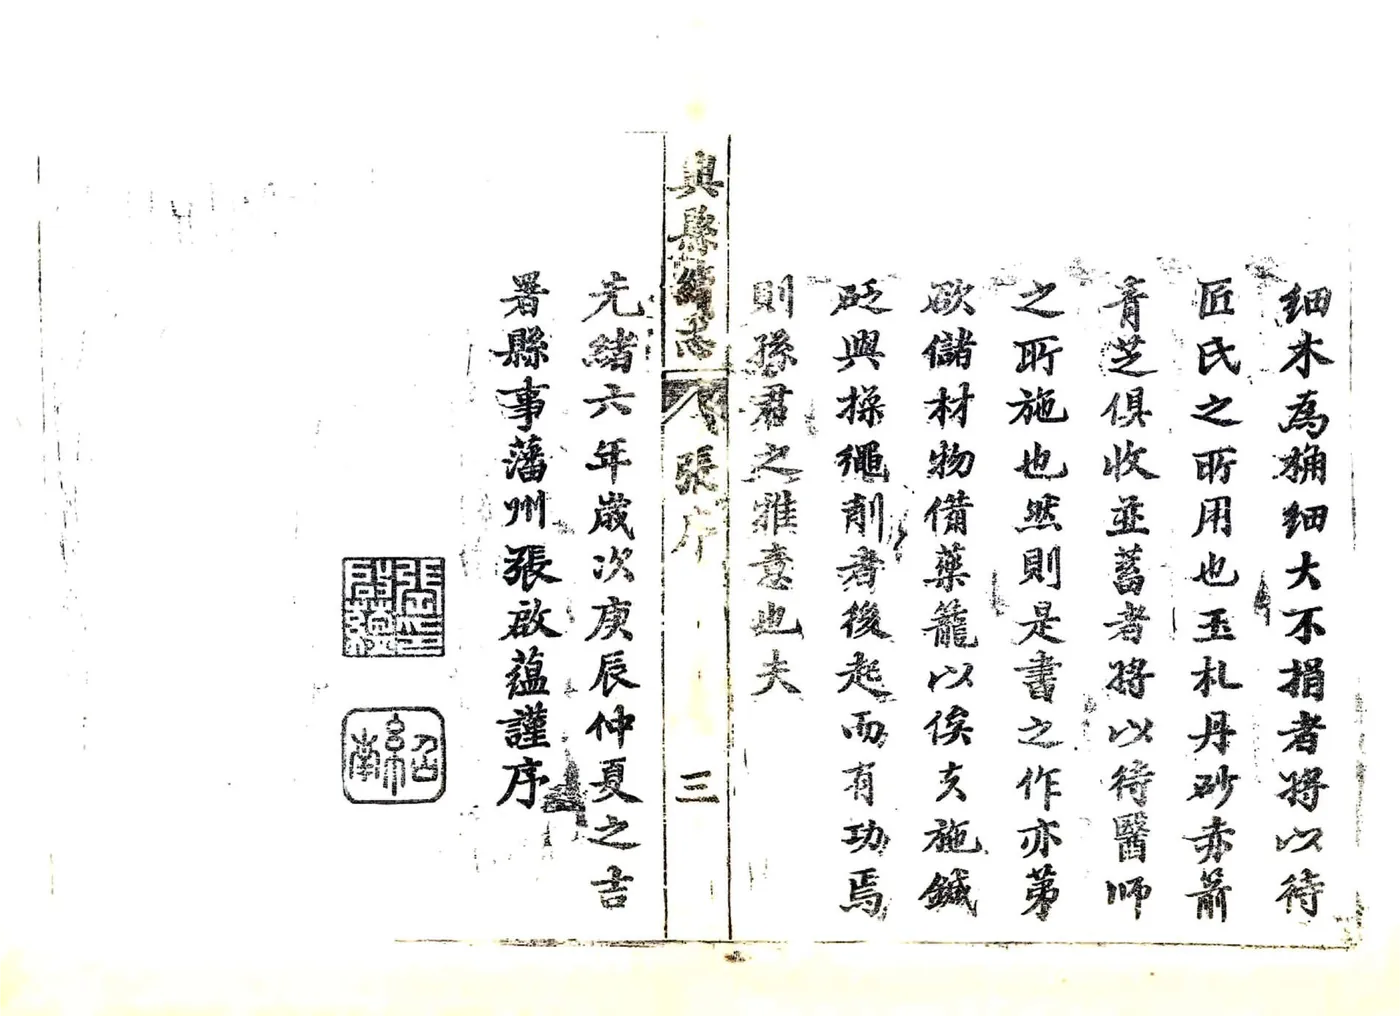 细木為桷细大不捐者将以待
匠氏之所用也玉札丹砂赤箭
青芝俱收並蓄者将以待醫师
之所施也然则是書之作亦第
欲儲材物備藥籠以俟夫施鍼
砭與操繩削者後起而有功焉
则孫君之雅意也夫
興縣續志
張序
三
光緒六年歲次庚辰仲夏之吉
署縣事藩州張啟蕴謹序
張啟蘊印
紹南